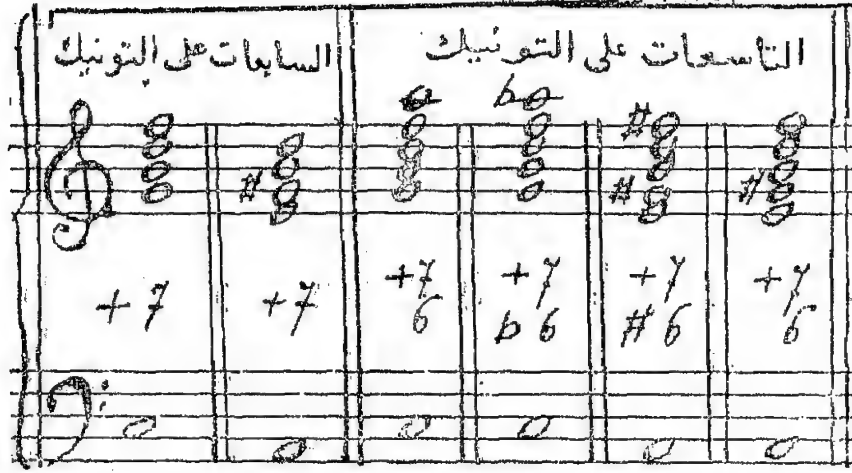 السابعات على التونيك التاسعات على التونيك
+7 +7 +7 +7 +7 +7
6 b6 #6 6